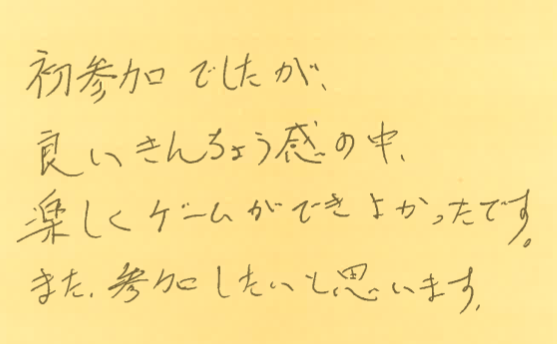 初参加でしたが、
良いきんちょう感の中、
楽しくゲームができよかったです。
また、参加したいと思います。